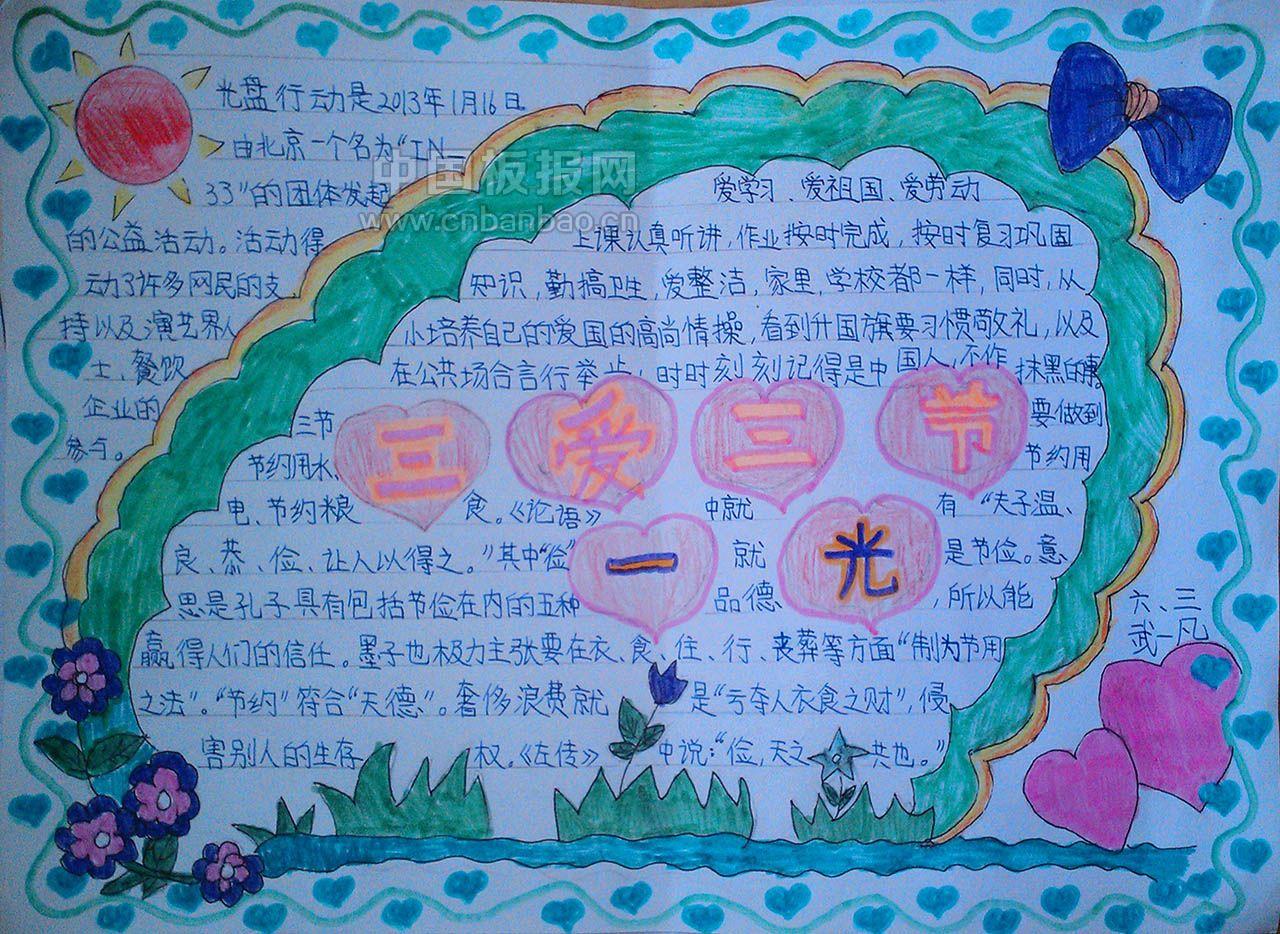 光盘行动是2013年1月16日
由北京一个名为“IN_
33”的团体发起
的公益活动。活动得
动了许多网民的支
持以及演艺界人
士、餐饮
企业的
参与。
中国板报网
www.cnbanbao.cn
爱学习、爱祖国、爱劳动
上课认真听讲,作业按时完成,按时复习巩固
知识,勤搞卫生,爱整洁,家里,学校都一样,同时,从
小培养自己的爱国的高尚情操,看到升国旗要习惯敬礼,以及
在公共场合言行举止,时时刻刻记得是中国人,不作 抹黑的事
三节 要做到
三爱三节
节约用水、 节约用
电、节约粮 食。《论语》 中就 有 “夫子温、
一光
良、恭、俭、让人以得之。”其中“俭” 就 是节俭。意
思是孔子具有包括节俭在内的五种 品德 ,所以能
赢得人们的信任。墨子也极力主张要在衣、食、住、行、丧葬等方面“制为节用
之法”。“节约”符合“天德”。奢侈浪费就 是“亏夺人衣食之财”,侵
害别人的生存 权。《左传》 中说:“俭,天之 共也。”
六、三
武一凡